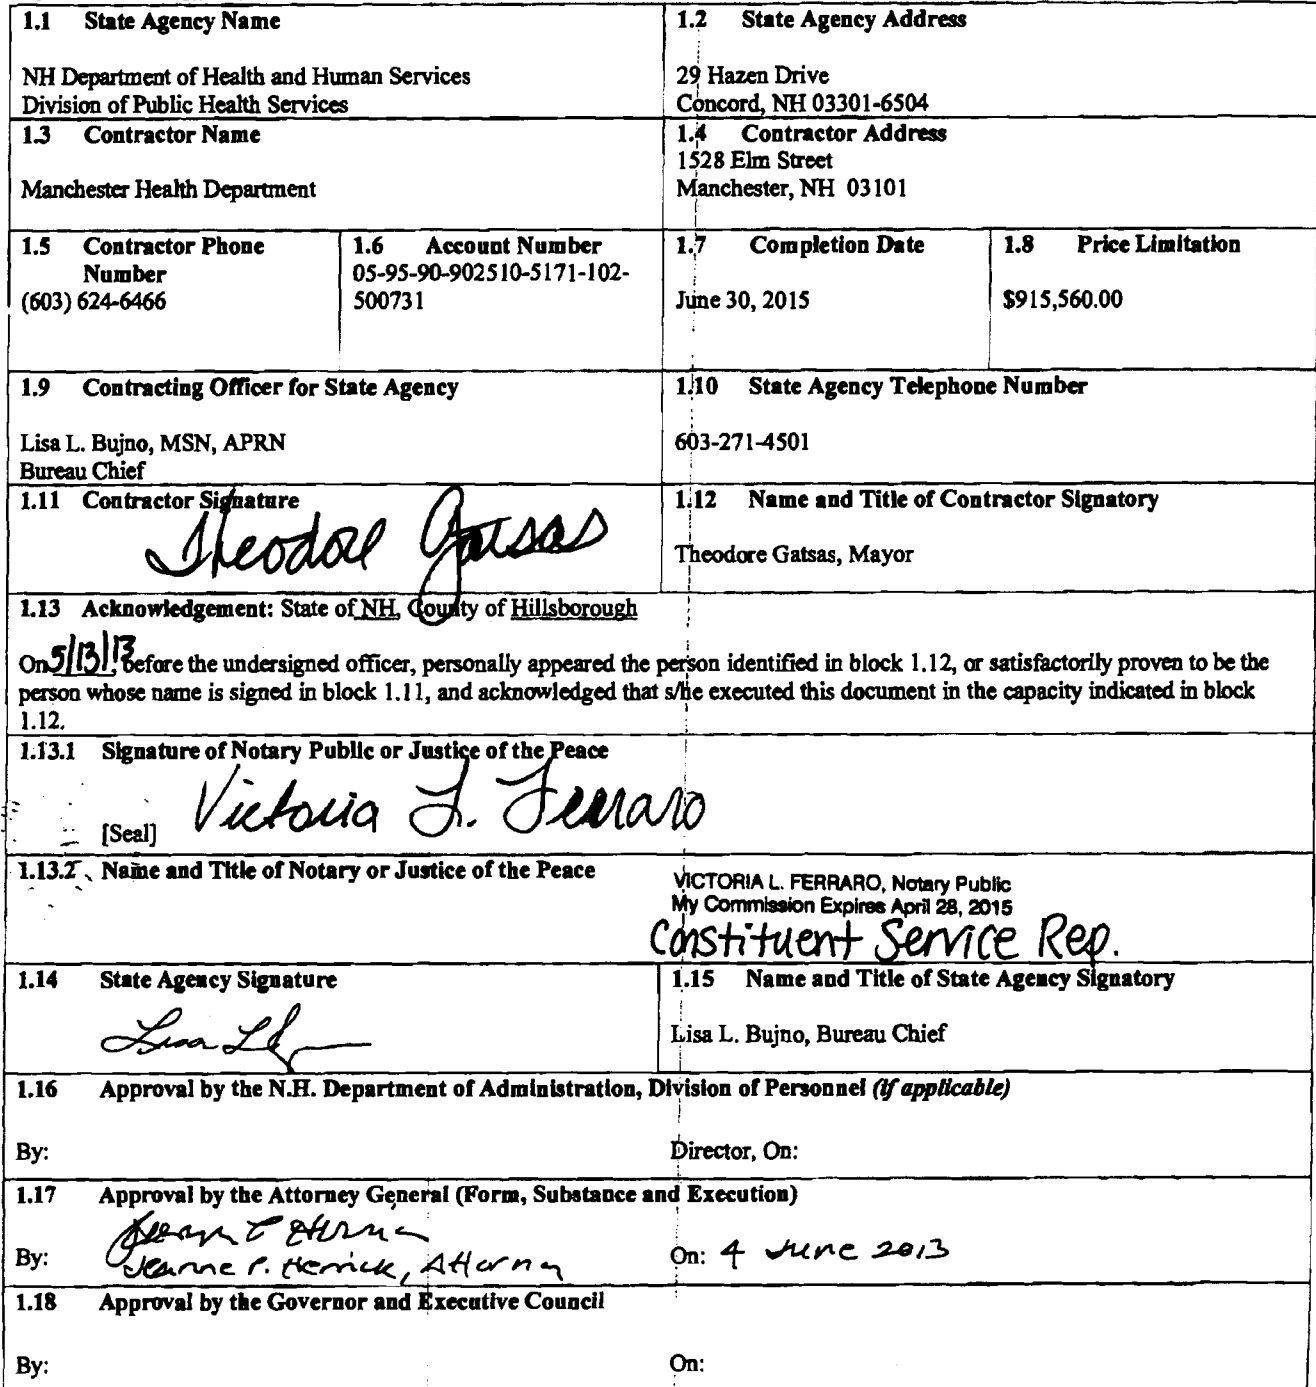 1.1 State Agency Name
NH Department of Health and Human Services
Division of Public Health Services
1.2 State Agency Address
29 Hazen Drive
Concord, NH 03301-6504
1.3 Contractor Name
Manchester Health Department
1.4 Contractor Address
1528 Elm Street
Manchester, NH 03101
1.5 Contractor Phone
Number
(603) 624-6466
1.6 Account Number
05-95-90-902510-5171-102-
500731
1.7 Completion Date
June 30, 2015
1.8 Price Limitation
$915,560.00
1.9 Contracting Officer for State Agency
Lisa L. Bujno, MSN, APRN
Bureau Chief
1.10 State Agency Telephone Number
603-271-4501
1.11 Contractor Signature
Theodore Gatsas
1.12 Name and Title of Contractor Signatory
Theodore Gatsas, Mayor
1.13 Acknowledgement: State of NH, County of Hillsborough
On 5/13/13 before the undersigned officer, personally appeared the person identified in block 1.12, or satisfactorily proven to be the
person whose name is signed in block 1.11, and acknowledged that s/he executed this document in the capacity indicated in block
1.12.
1.13.1 Signature of Notary Public or Justice of the Peace
Victoria L. Ferraro
[Seal]
1.13.2 Name and Title of Notary or Justice of the Peace
VICTORIA L. FERRARO, Notary Public
My Commission Expires April 28, 2015
Constituent Service Rep.
1.14 State Agency Signature
Lisa L
1.15 Name and Title of State Agency Signatory
Lisa L. Bujno, Bureau Chief
1.16 Approval by the N.H. Department of Administration, Division of Personnel (if applicable)
By:
Director, On:
1.17 Approval by the Attorney General (Form, Substance and Execution)
By: Jeanne P. Herrick, Attorney
On: 4 June 2013
1.18 Approval by the Governor and Executive Council
By:
On: